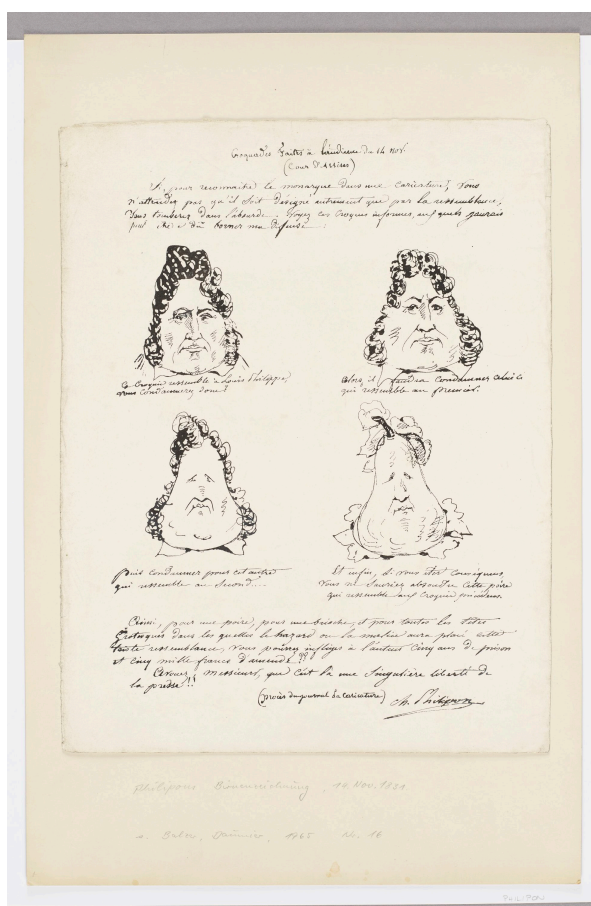 Croquades faites à l'audience du 14 Nov.
(Cour d'Assises)
Si, pour reconnaître le monarque dans une caricature, vous
n'attendez pas qu'il soit désigné autrement que par la ressemblance,
vous tomberez dans l'absurde. Voyez ces croquis informes, auxquels j'aurais
peut-être dû borner ma défense :
Ce croquis ressemble à Louis Philippe,
vous condamnerez donc ?
Alors, il faudra condamner celui-ci
qui ressemble au premier.
Puis condamner pour cet autre
qui ressemble au second...
Et enfin, si vous êtes conséquens
vous ne sauriez absoudre cette poire
qui ressemble aux croquis précédens.
Ainsi, pour une poire, pour une brioche, et pour toutes les têtes
grotesques dans lesquelles le hazard ou la malice aura placé cette
triste ressemblance, vous pourrez infliger à l'auteur cinq ans de prison
et cinq mille francs d'amende !!
Avouez, Messieurs, que c'est là une singulière liberté de
la presse !!
(procès du journal la caricature)
Ch. Philipon
Philipons Birnenzeichnung, 14. Nov. 1831
Daumier, 1965 Nr. 16
PHILIPON